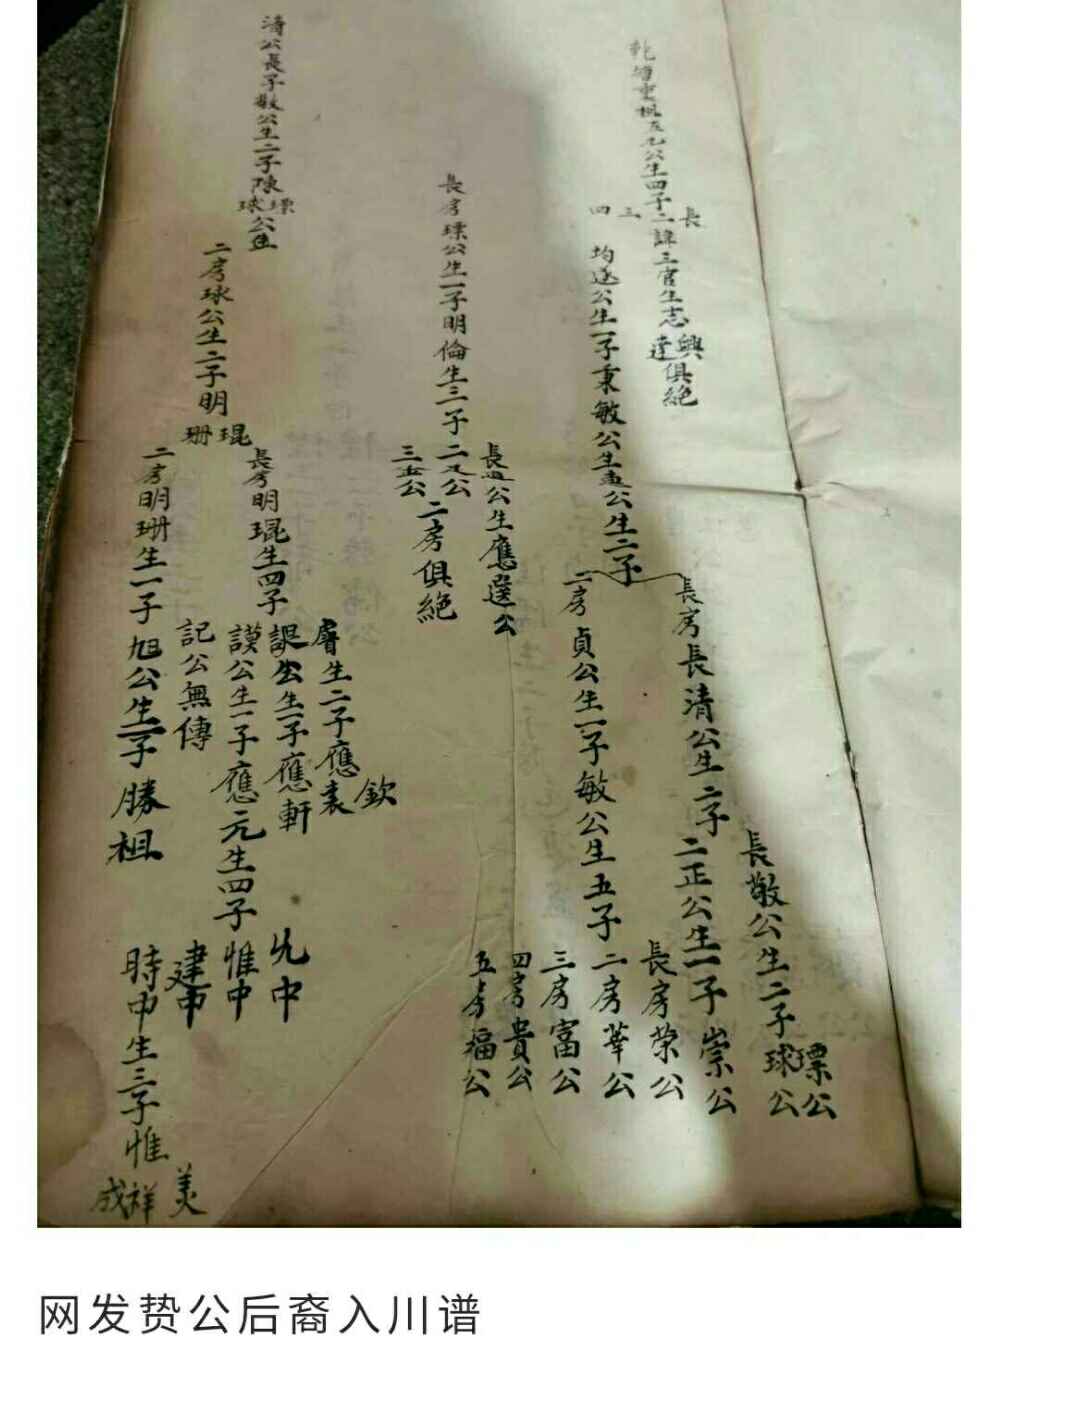 公生四子
長
二諱
三
四
三官生志
興
達
俱絶
均遂公生一子秉敏公生
公生二子
長房長清公生二子
長敬公生二子
球公
瓢公
二正公生一子崇公
二房貞公生一子敏公生五子
長房榮公
二房華公
三房富公
四房貴公
五房福公
長房瓢公生一子明倫生三子
長
公生應選公
二
公
三
公
二房俱絶
清公長子敬公生二子
球
公生
二房球公生二子明
琨
珊
長房明琨生四子
膺生二子應
欽
公生一子應軒
謨公生一子應元生四子
記公無傳
允中
惟中
建中
時中生三子惟
美
祥
成
二房明珊生一子旭公生一子勝祖
网发贽公后裔入川谱